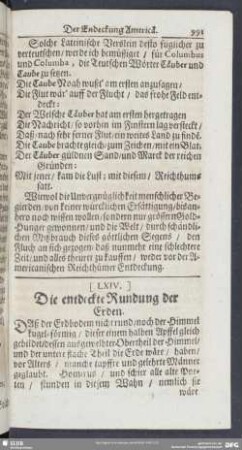 Der Endeckung Americä. 991
Solche Lateinische Verslein desto füglicher zu
verteutschen / werde ich bemüssiget / für Columbus
und Columba, die Teutschen Wörter Täuber und
Taube zu setzen.
Die Taube Noah wusst' am ersten anzusagen /
Die Flut wär' auff der Flucht / das frohe Feld ent-
deckt:
Der Welsche Täuber hat am ersten hergetragen
Die Nachricht / so vorhin im Finstern lag versteckt /
Daß / nach sehr ferner Flut / ein weites Land zu finde.
Die Taube brachte gleich / zum Zeichen / mit ein Blat.
Der Täuber güldnen Sand / und Marck der reichen
Gründen:
Mit jener / kam die Lust; mit diesem / Reichthums-
satt.
Wiewol die Unvergnüglichkeit menschlicher Be-
gierden / von keiner würcklichen Ersättigung / bekant
noch wissen wollen / sondern nur größern Gold-
Hunger gewonnen / und die Welt / durch schändli-
chen Mißbrauch dieses göttlichen Segens / den
Fluch an sich gezogen: das nunmehr eine schlechtere
Zeit / und alles theurer zu kauffen / weder vor der A-
mericanischen Reichthümer Entdeckung.
[ LXIV. ]
Die entdeckte Rundung der
Erden.
Daß der Erdbodem nicht rund / noch der Himmel
kugel-förmig / dieser einem halben Apffel gleich
gebildet / dessen ausgewölbter Obertheil der Himmel /
und der unter flache Theil die Erde wäre / haben /
vor Alters / manche tapffre und gelehrte Männer
geglaubt. Homerus / und schier alle alte Poe-
ten / stunden in diesem Wahn / nemlich sie
wäre
SLUB
DRESDEN
DFG